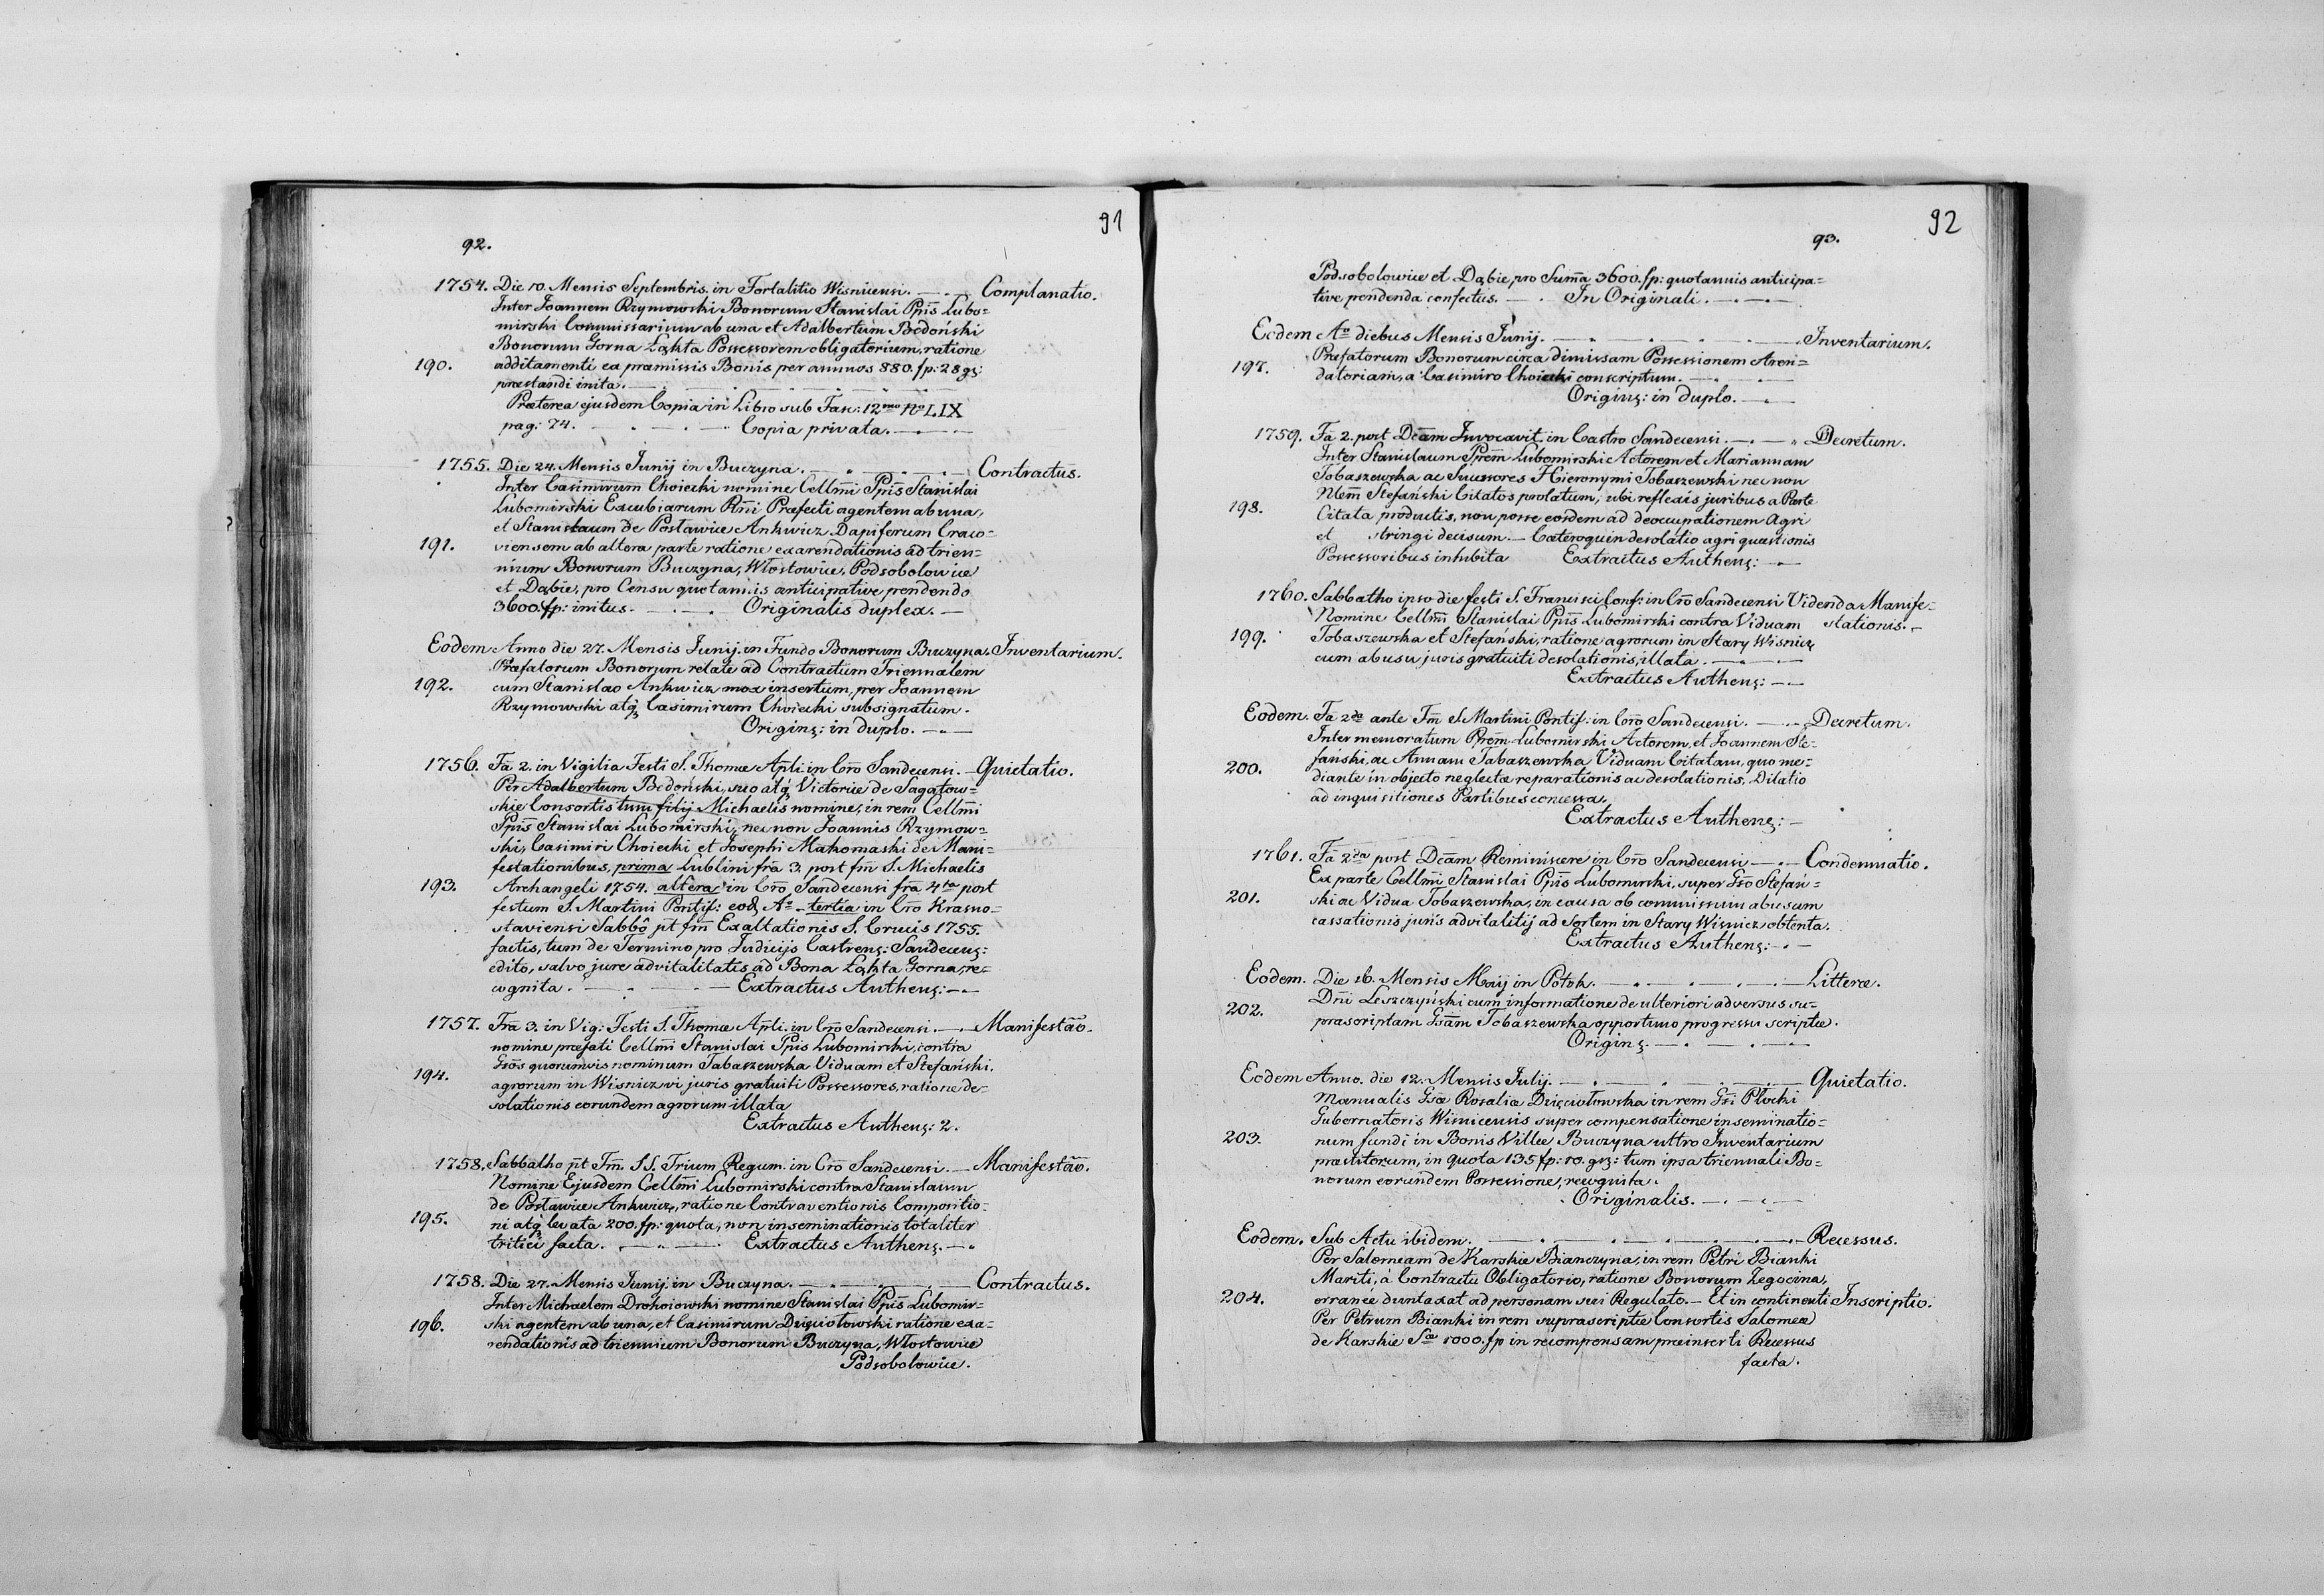 91
92.
1754. Die 10. Mensis Septembris. in Fortalitio Wisnicensi. Complanatio.
Inter Joannem Rzymowski Bonorum Stanislai Ppīs Lubo=
mirski Commissarium ab una et Adalbertum Bedoński
Bonorum Gorna Łąkta Possessorem obligatorium, ratione
190. additamenti ex praemissis Bonis per annuos 880. fp: 28 gs:
praestandi inita.
Praeterea ejusdem Copia in Libro sub Fasc: 12mo No LIX
pag: 74. Copia privata.
1755. Die 24. Mensis Junij in Buczyna. Contractus.
Inter Casimirum Choiecki nomine Cellm̄i Ppīs Stanislai
Lubomirski Excubiarum Rn̄i Praefecti agentem ab una,
et Stanislaum de Postawice Ankwicz Dapiferum Craco=
191. viensem ab altera parte ratione exarendationis ad trien=
nium Bonorum Buczyna, Włostowice, Podsobolowice
et Dąbie, pro Censu quotannis anticipative pendendo
3600. fp: initus. Originalis duplex.
Eodem Anno die 27. Mensis Junij. in Fundo Bonorum Buczyna. Inventarium.
Praefatorum Bonorum relate ad Contractum Triennalem
192. cum Stanislao Ankwicz mox insertum, per Joannem
Rzymowski atq Casimirum Choiecki subsignatum.
Origins: in duplo.
1756. Fa 2. in Vigilia Festi S. Thomae Apli in Cro Sandecensi. Quietatio.
Per Adalbertum Bedoński, suo atq Victoriae de Sagatow=
skie Consortis tum filij Michaelis nomine, in rem Cellm̄i
Ppīs Stanislai Lubomirski, nec non Joannis Rzymow=
ski, Casimiri Choiecki et Josephi Makomaski de Mani=
festationibus, prima Lublini fra 3. post fm̄ S. Michaelis
193. Archangeli 1754. altera in Cro Sandecensi fra 4ta post
festum S. Martini Pontif: eod Ao tertia in Cro Krasno=
staviensi Sabbō pt fm̄ Exaltationis S. Crucis 1755.
factis, tum de Termino pro Judicijs Castrens: Sandecens:
edito, salvo jure advitalitatis ad Bona Łąkta Gorna, re=
cognita. Extractus Authens:
1757. Fra 3. in Vig: Festi S. Thomae Apli. in Cro Sandecensi. Manifestāo.
nomine praefati Cellm̄i Stanislai Ppis Lubomirski, contra
Gsōs quorumvis nominum Tabaszewska Viduam et Stefański,
194. agrorum in Wisnicz vi juris gratuiti Possessores, ratione de=
solationis eorundem agrorum illata
Extractus Authens: 2.
1758. Sabbatho pt Fm̄. SS. Trium Regum. in Cro Sandecensi. Manifestāo.
Nomine Ejusdem Cellm̄i Lubomirski contra Stanislaum
de Postawice Ankwicz, ratione Contraventionis Compositio=
195. ni atq levata 200. fp: quota, non inseminationis totaliter
tritici facta. Extractus Authens.
1758. Die 27. Mensis Junij. in Buczyna. Contractus.
Inter Michaelem Drohoiowski nomine Stanislai Ppīs Lubomir=
196. ski agentem ab una, et Casimirum Dzięciołowski ratione exa=
rendationis ad triennium Bonorum Buczyna, Włostowice
Podsobolowice.
92
93.
Podsobolowice et Dąbie, pro Sum̄a 3600. fp: quotannis anticipa=
tive pendenda confectus. In Originali.
Eodem Ao diebus Mensis Junij. Inventarium.
Praefatorum Bonorum circa dimissam Possessionem Aren=
197. datoriam, a Casimiro Choiecki conscriptum.
Origins: in duplo.
1759. Fa 2. post Dcām Invocavit. in Castro Sandecensi. Decretum.
Inter Stanislaum Ppem̄ Lubomirski Actorem et Mariannam
Tobaszewska ac Successores Hieronymi Tobaszewski nec non
Nlem̄ Stefański Citatos prolatum, ubi reflexis juribus a Parte
198. Citata productis, non posse eosdem ad deoccupationem Agri
et stringi decisum. Caeteroquin desolatio agri quaestionis
Possessoribus inhibita Extractus Authens:
1760. Sabbatho ipso die festi S. Francisci Conf: in Cro Sandecensi Videnda Manife=
Nomine Cellm̄i Stanislai Ppīs Lubomirski contra Viduam stationis.
199. Tobaszewska et Stefański, ratione agrorum in Stary Wisnicz
cum abusu juris gratuiti desolationis, illata.
Extractus Authens:
Eodem. Fa 2da ante Fm̄ S. Martini Pontif: in Cro Sandecensi. Decretum.
Inter memoratum Ppem̄ Lubomirski Actorem, et Joannem Ste=
200. fański, ac Annam Tabaszewska Viduam Citatam, quo me=
diante in objecto neglectae reparationis ac desolationis, Dilatio
ad inquisitiones Partibus concessa.
Extractus Authens:
1761. Fa 2da post Dcām Reminiscere in Cro Sandecensi Condemnatio.
Ex parte Cellm̄i Stanislai Ppīs Lubomirski, super Gso Stefań=
201. ski ac Vidua Tobaszewska, in causa ob commissum abusum
cassationis juris advitalitij ad Sortem in Stary Wisnicz obtenta.
Extractus Authens:
Eodem. Die 16. Mensis Maij in Potok. Litterae.
202. Dn̄i Leszczyński cum informatione de ulteriori adversus su=
prascriptam Gsām Tobaszewska opportuno progressu scriptae.
Origins:
Eodem Anno. die 12. Mensis Julij. Quietatio.
Manualis Gsae Rosalia Dzięciołowska in rem Gsi Płocki
Gubernatoris Wisnicensis super compensatione inseminatio=
203. num fundi in Bonis Villae Buczyna ultro Inventarium
praestitorum, in quota 135 fp: 10. grs: tum ipsa triennali Bo=
norum eorundem Possessione, recognita.
Originalis.
Eodem. Sub Actu ibidem. Recessus.
Per Salomeam de Karskie Bianczyna, in rem Petri Bianki
Mariti, à Contractu Obligatorio, ratione Bonorum Zegocina,
204. erranee duntaxat ad personam sui Regulato. Et in continenti Inscriptio.
Per Petrum Bianki in rem suprascriptae Consortis Salomeae
de Karskie Sae 1000. fp in recompensam praeinserti Recessus
facta.